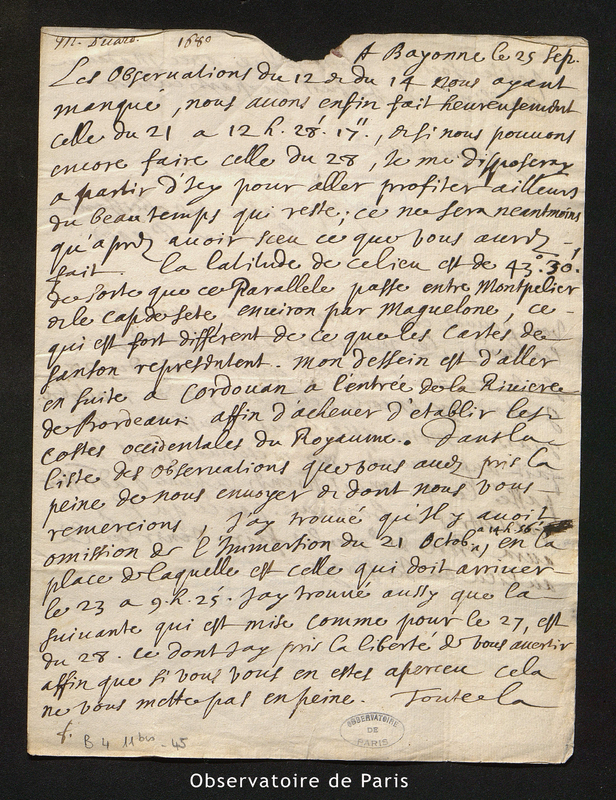 Mr. Picard. 1680
A Bayonne le 25 Sep.
Les Observations du 12 & du 14 nous ayant
manqué, nous avons enfin fait heureusement
celle du 21 a 12 h. 28'. 17", & si nous pouvons
encore faire celle du 28, Je me disposeray
a partir d'Icy pour aller profiter ailleurs
du beau temps qui reste; ce ne sera neantmoins
qu'apréz avoir sceu ce que vous aurez
fait. La latitude de ce lieu est de 43°. 30'.
de sorte que ce Parallele passe entre Montpelier
& le cap de Sete environ par Maguelone, ce
qui est fort différent de ce que les Cartes de
Sanson representent. Mon dessein est d'aller
en suite a Cordouan a l'entrée de la Riviere
de Bordeaux affin d'achever d'etablir les
Costes occidentales du Royaume. Dans la
liste des Observations que vous avez pris la
peine de nous envoyer & dont nous vous
remercions, J'ay trouvé qu'Il y avoit
omission de l'Immersion du 21 Octob. a 14 h. 56', en la
place de laquelle est celle qui doit arriver
le 23 a 9. h. 25'. J'ay trouvé aussy que la
suivante qui est mise comme pour le 27, est
du 28. ce dont J'ay pris la liberté de vous avertir
affin que si vous vous en estes aperceu cela
ne vous mette pas en peine. Toute la
B 4 11bis - 45
OBSERVATOIRE
DE
PARIS
Observatoire de Paris